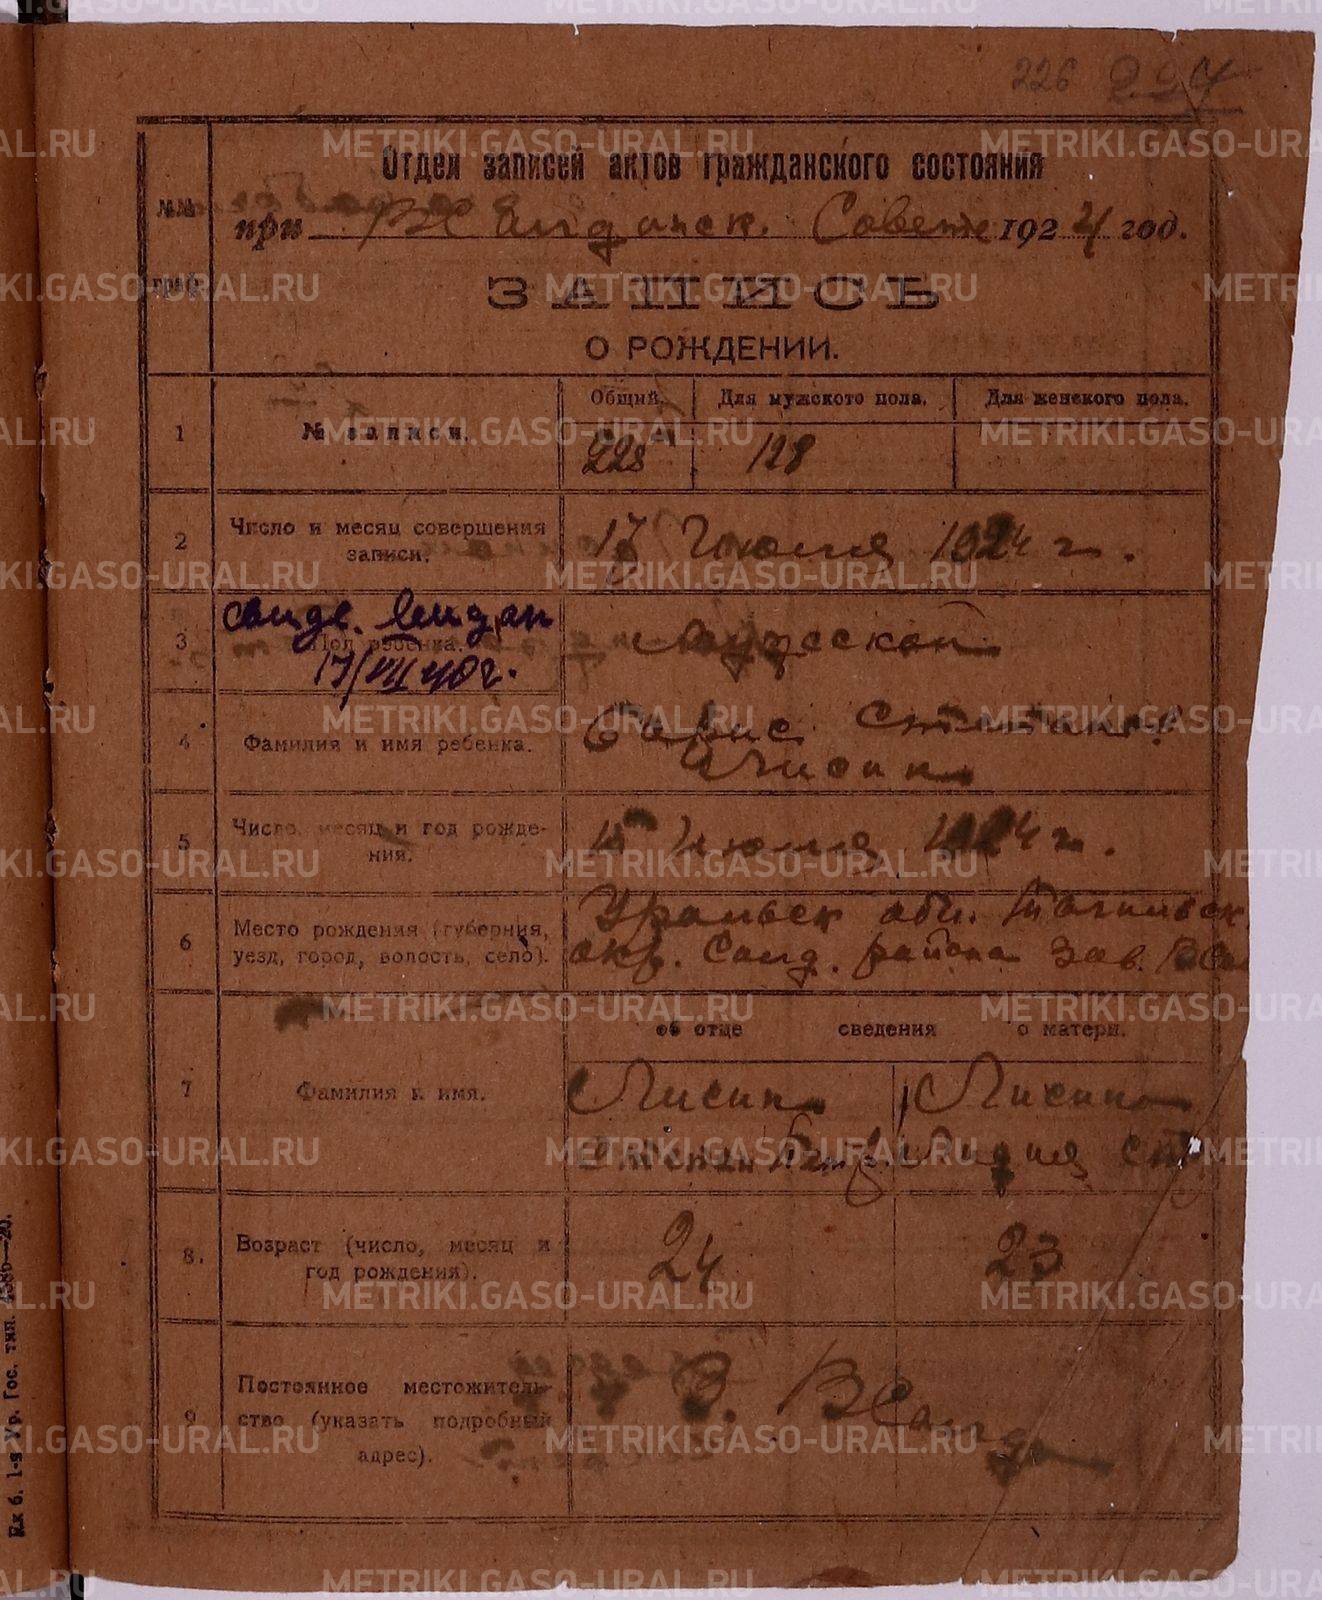 226 227
Отдел записей актов гражданского состояния
№№ граф.
при Совете 1924 год.
ЗАПИСЬ
О РОЖДЕНИИ.
1 № записи. Общий. Для мужского пола. Для женского пола.
228 128
2 Число и месяц совершения записи. 17 Июля 1924 г.
3 Пол ребенка. мужской
17/VII 40 г.
4 Фамилия и имя ребенка. Борис Степанов
Лисин
5 Число, месяц и год рождения. 15 Июля 1924 г.
6 Место рождения (губерния, Уральск обл. Тагильск.
уезд, город, волость, село). окр. Салд. района зав.
об отце сведения о матери.
7 Фамилия и имя. Лисин Лисина
Степан Лидия
8. Возраст (число, месяц и год рождения). 24 23
9 Постоянное местожительство (указать подробный адрес). В Салда
Ек б. 1-я Ур. Гос. тип. 4586—20.
METRIKI.GASO-URAL.RU